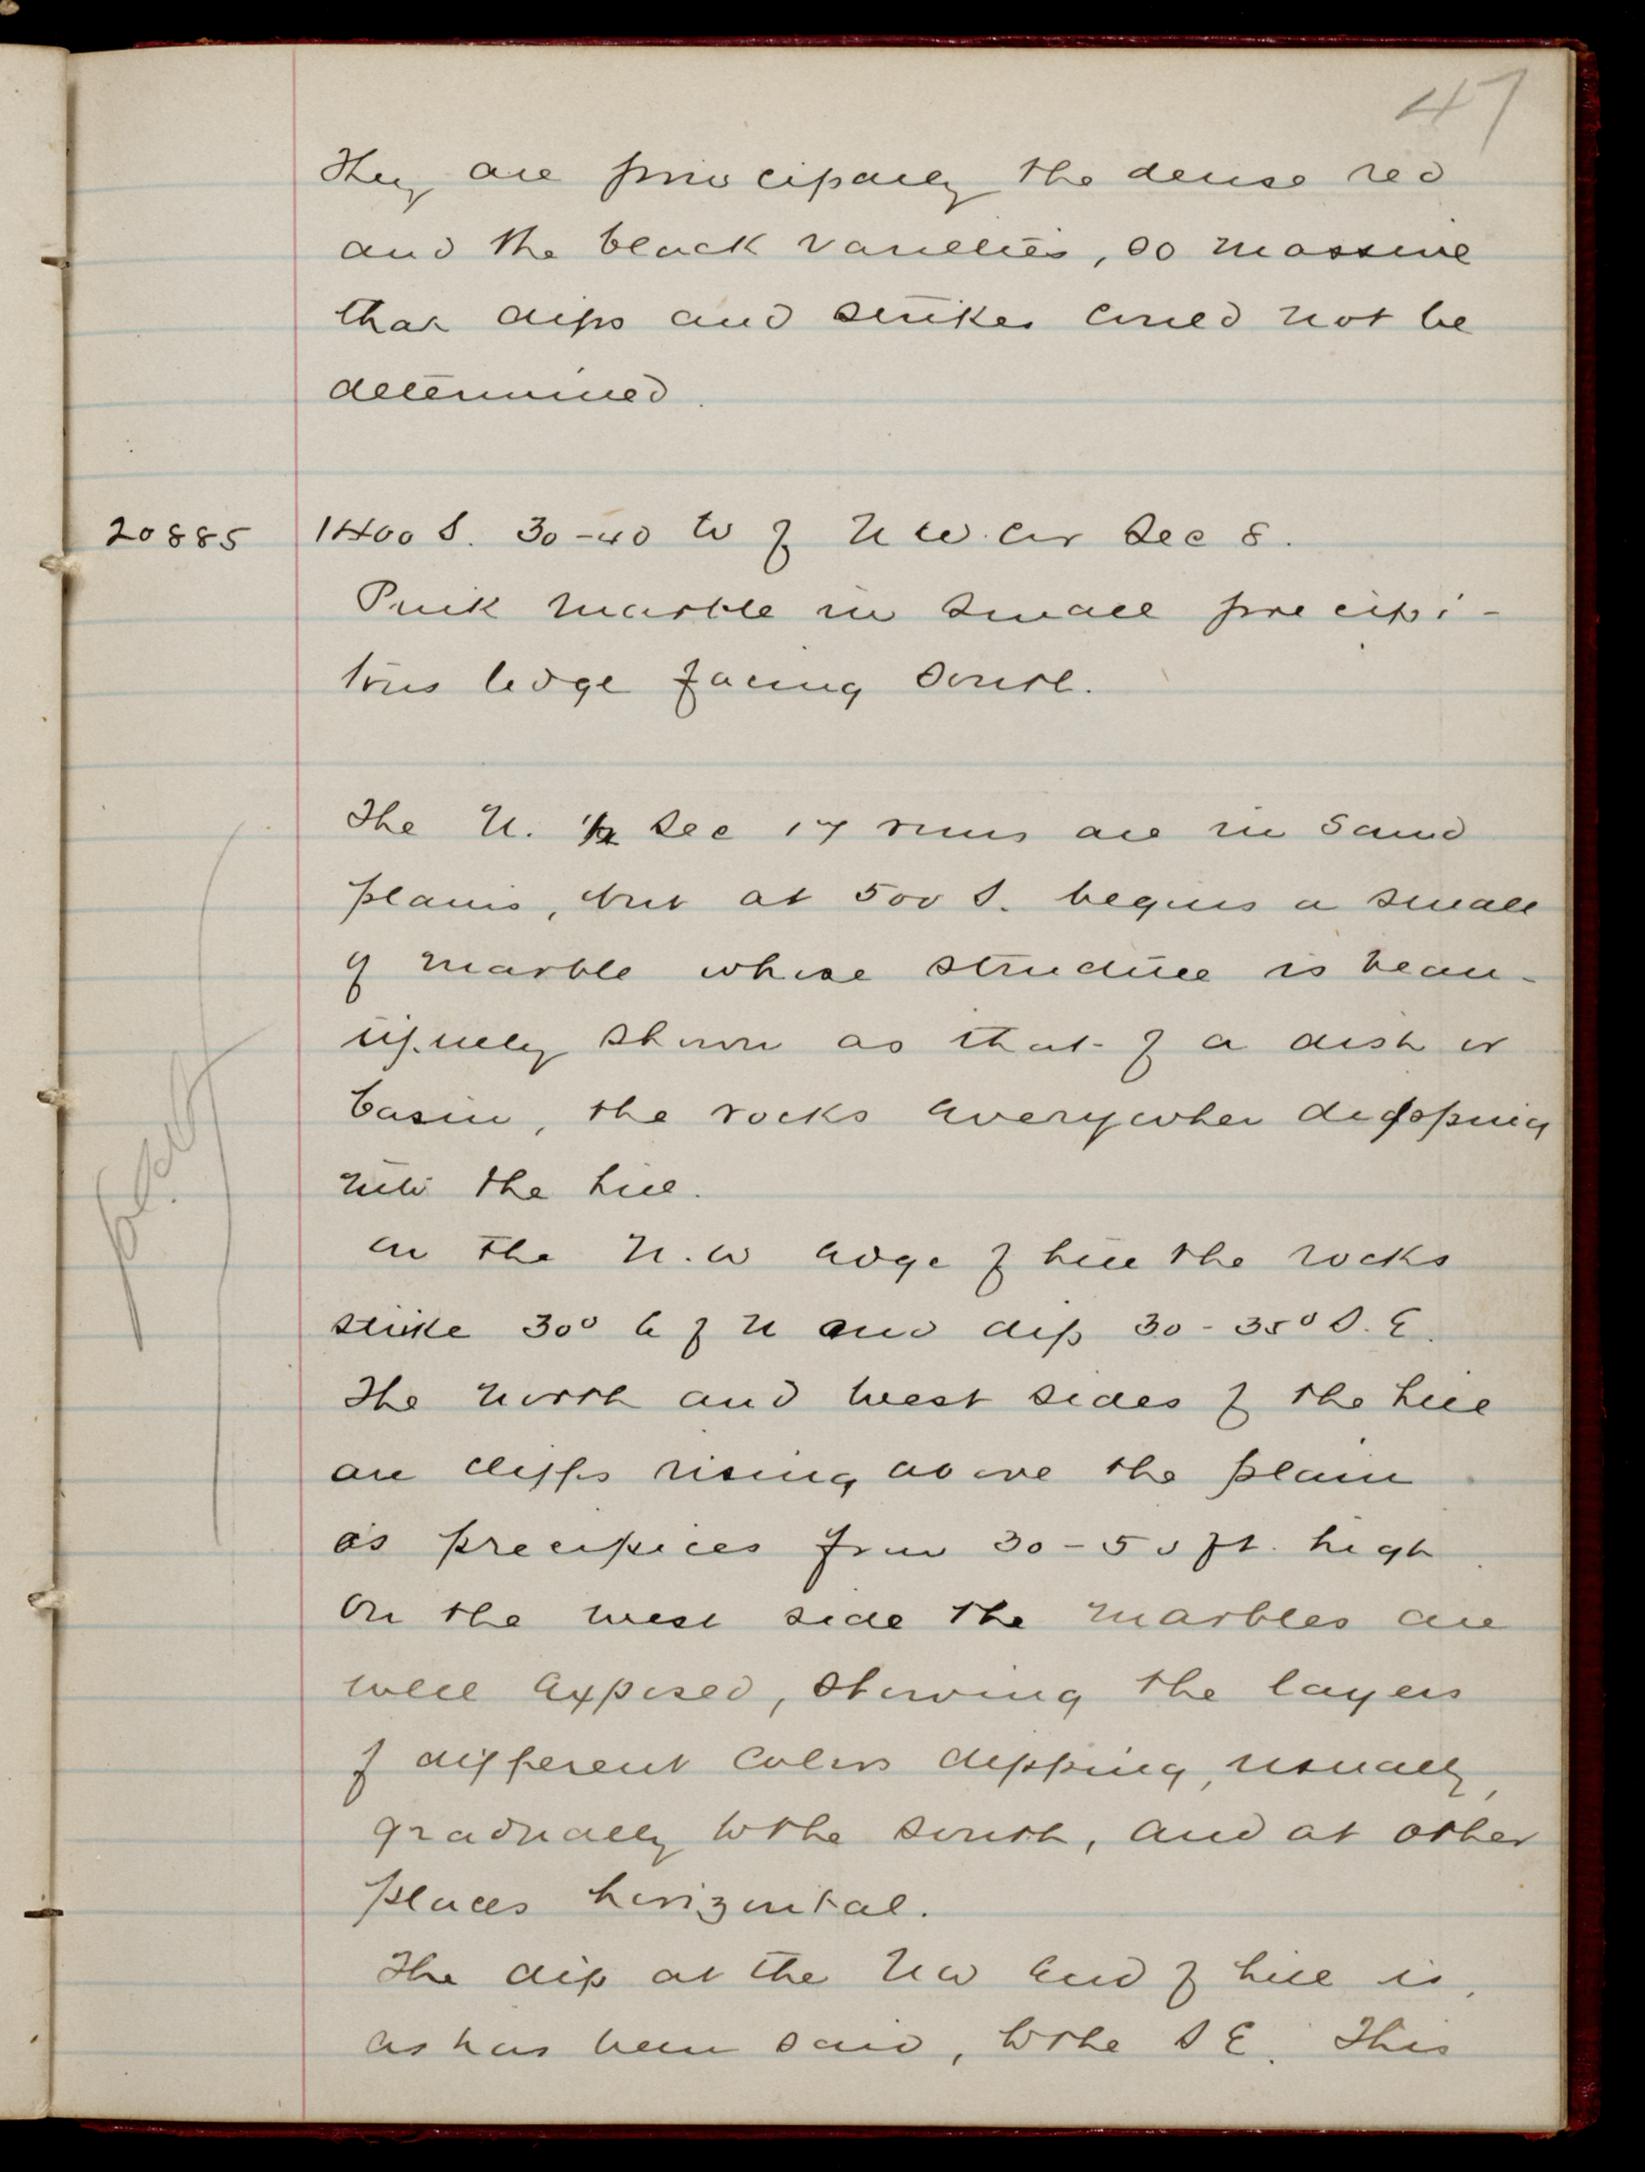 47
They are principally the dense red
and the black varieties, so massive
that dips and strikes could not be
determined.
20885 1400 S. 30-40 W of N W. Cor Sec 8.
Pink marble in small precipi-
tous ledge facing south.
The N. 1/2 Sec 17 runs are in sand
plains, but at 500 S. begins a small
of marble whose structure is beau-
tifully shown as that of a dish or
basin, the rocks everywher dipping
into the hill.
On the N.W edge of hill the rocks
strike 30° E of N and dip 30-35° S.E.
The north and west sides of the hill
are cliffs rising above the plain
as precipices from 30-50 ft. high.
On the west side the marbles are
well exposed, showing the layers
of different colors dipping, usually,
gradually to the south, and at other
places horizontal.
The dip at the NW end of hill is,
as has been said, to the S E. This